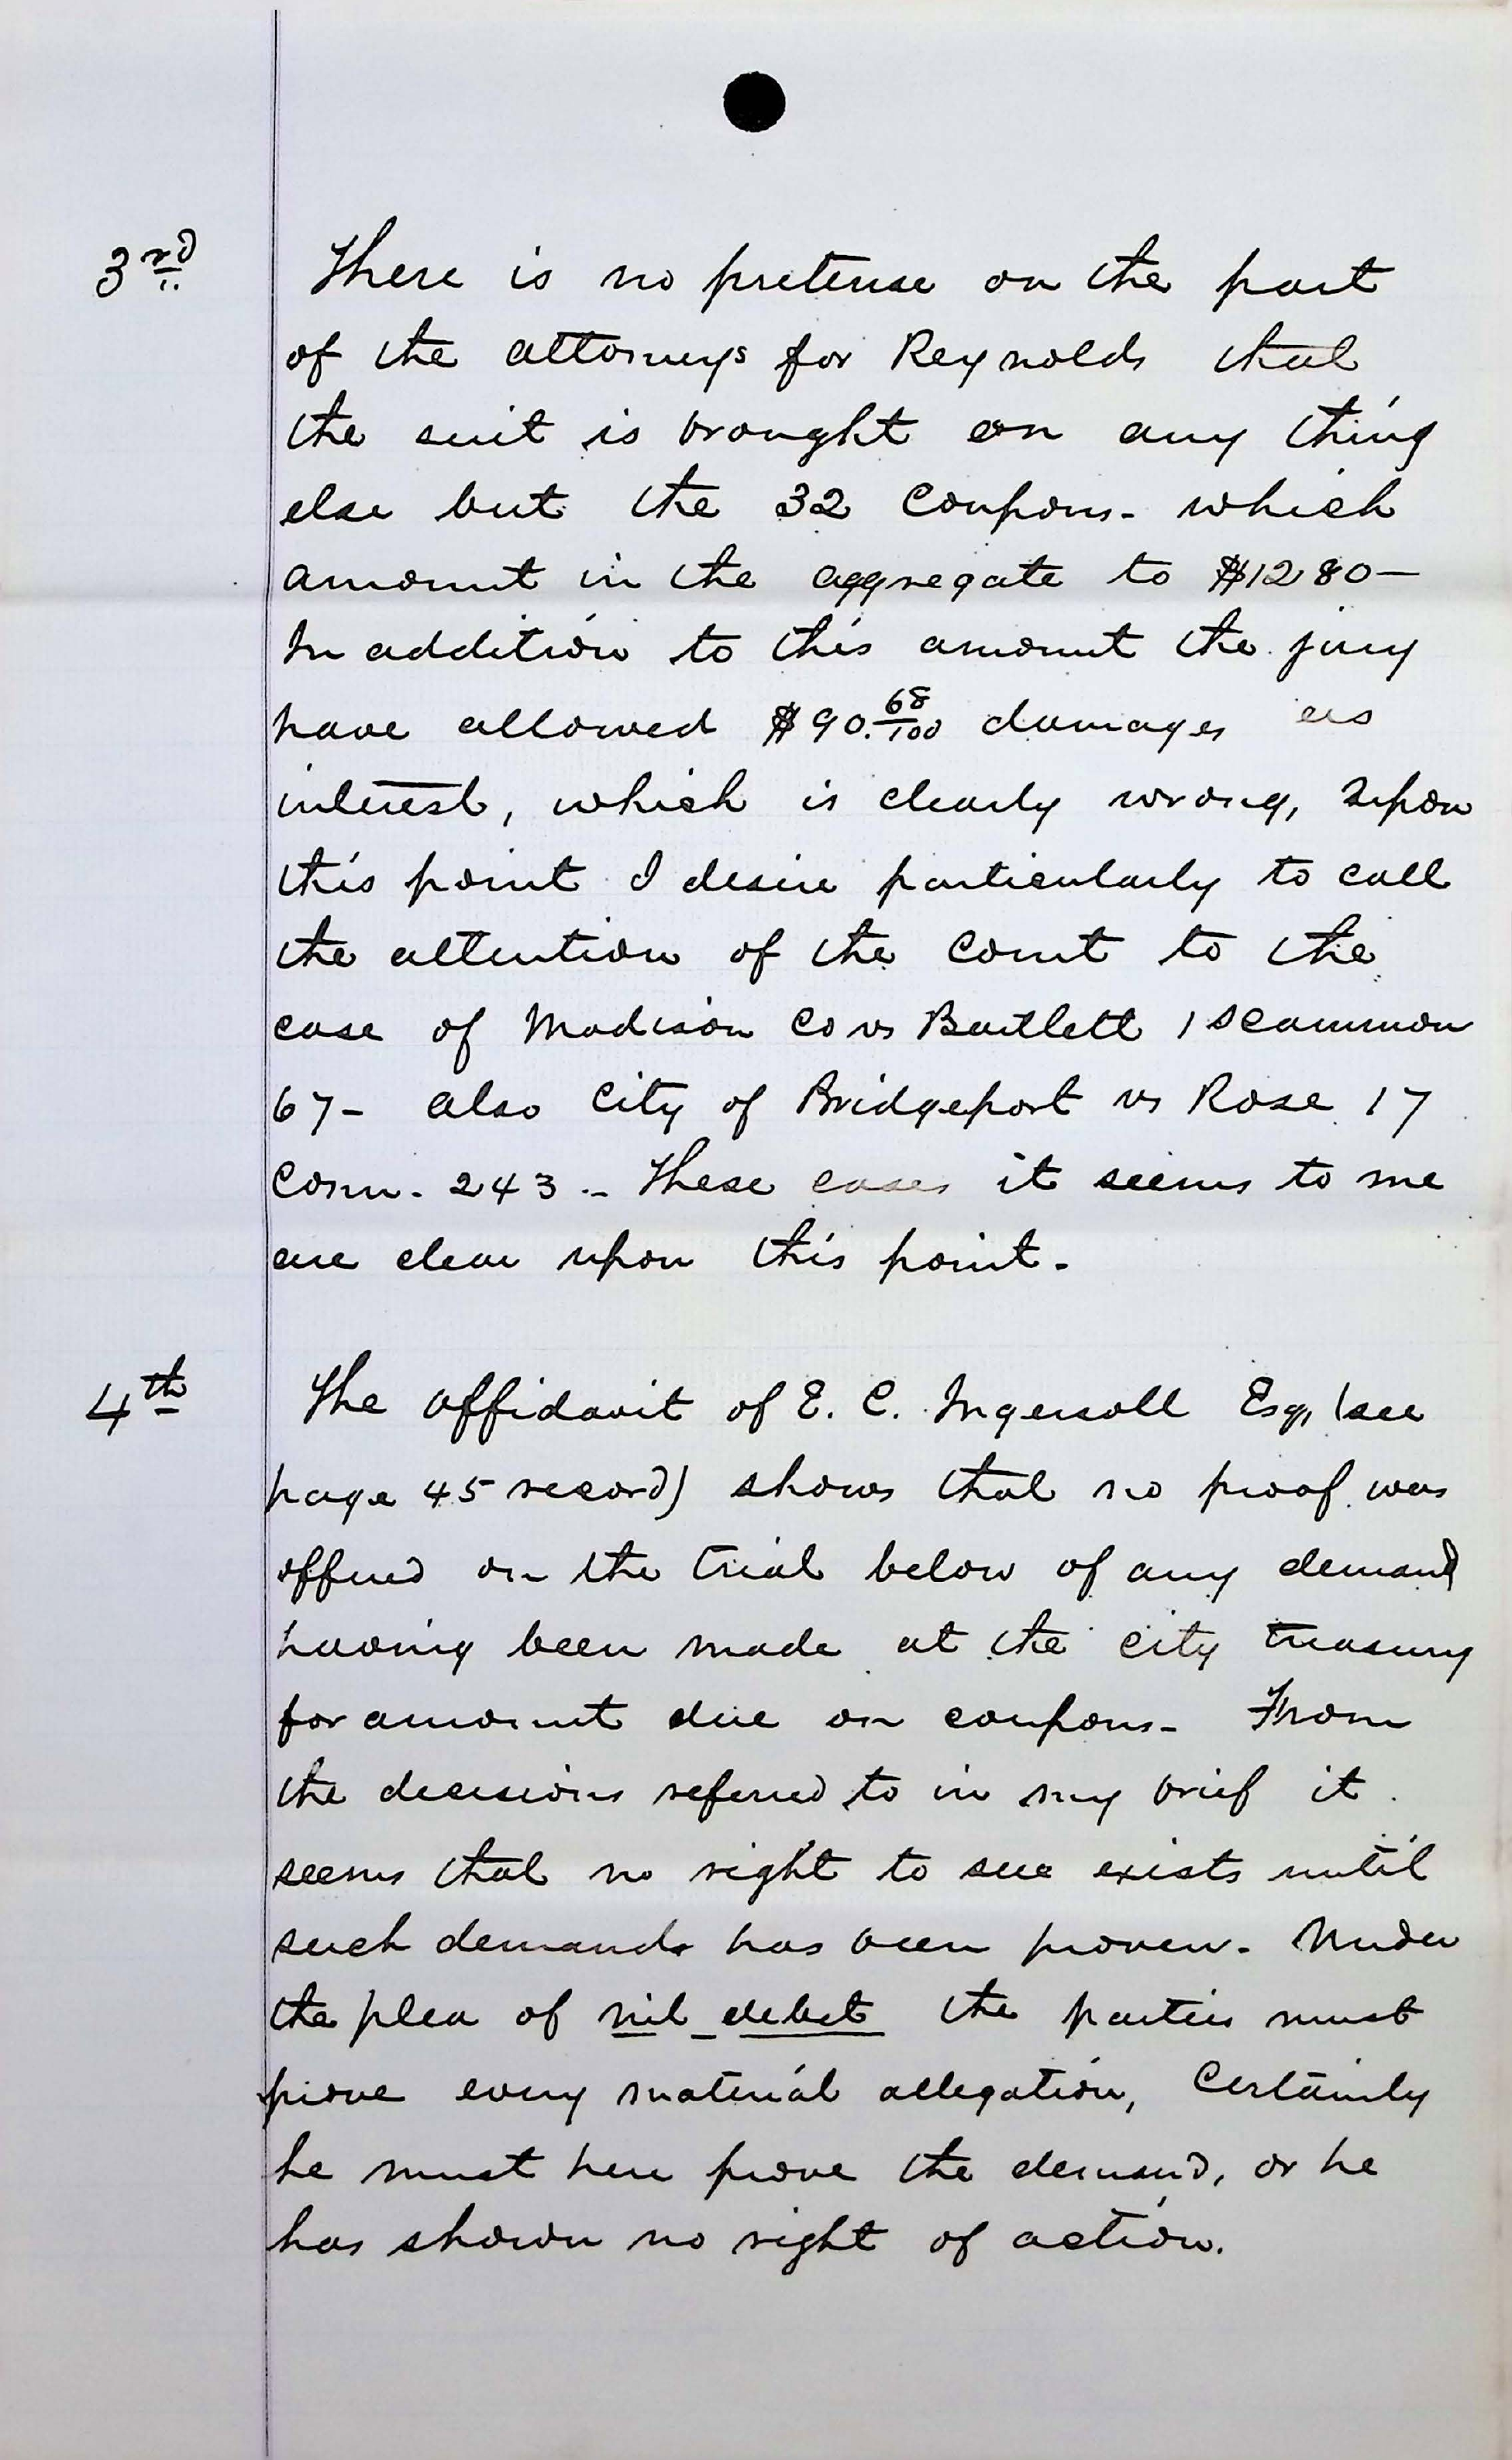 3rd There is no pretense on the part
of the attorneys for Reynolds that
the suit is brought on any thing
else but the 32 Coupons - which
amount in the aggregate to $1280 —
In addition to this amount the jury
have allowed $90.68/100 damages as
interest, which is clearly wrong, Upon
this point I desire particularly to call
the attention of the Court to the
case of Madison Co vs Bartlett 1 Scammon
67 - also City of Bridgeport vs Rose 17
Conn. 243 - These cases it seems to me
are clear upon this point -
4th The affidavit of E. C. Ingersoll Esq, (see
page 45 record) shows that no proof was
offered on the trial below of any demand
having been made at the city treasury
for amount due on coupons - From
the decisions referred to in my brief it
seems that no right to sue exists until
such demands has been proven - Under
the plea of nil debet the parties must
prove every material allegation, Certainly
he must here prove the demand, or he
has shown no right of action.